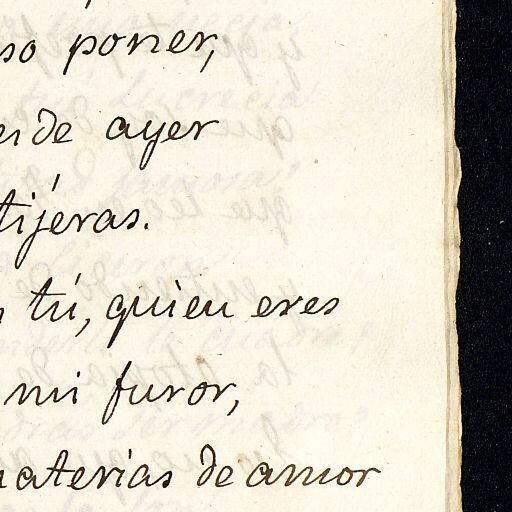 so poner,
de ayer
tijeras.
tú, quien eres
mi furor,
materias de amor